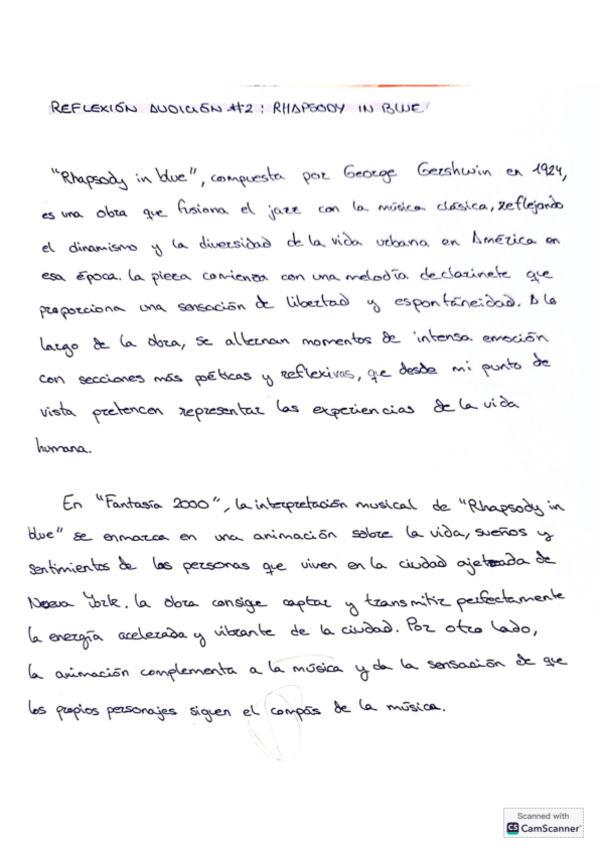 REFLEXIÓN AUDICIÓN #2: RHAPSODY IN BLUE
"Rhapsody in blue", compuesta por George Gershwin en 1924,
es una obra que fusiona el jazz con la música clásica, reflejando
el dinamismo y la diversidad de la vida urbana en América en
esa época. La pieza comienza con una melodía de clarinete que
proporciona una sensación de libertad y espontáneidad. A lo
largo de la obra, se alternan momentos de intensa emoción
con secciones más poéticas y reflexivas, que desde mi punto de
vista pretencen representar las experiencias de la vida
humana.
En "Fantasía 2000", la interpretación musical de "Rhapsody in
blue" se enmarca en una animación sobre la vida, sueños y
sentimientos de las personas que viven en la ciudad ajetreada de
Nueva York. La obra consige captar y transmitir perfectamente
la energía acelerada y vibrante de la ciudad. Por otro lado,
la animación complementa a la música y da la sensación de que
los propios personajes siguen el compás de la música.
Scanned with
CS CamScanner